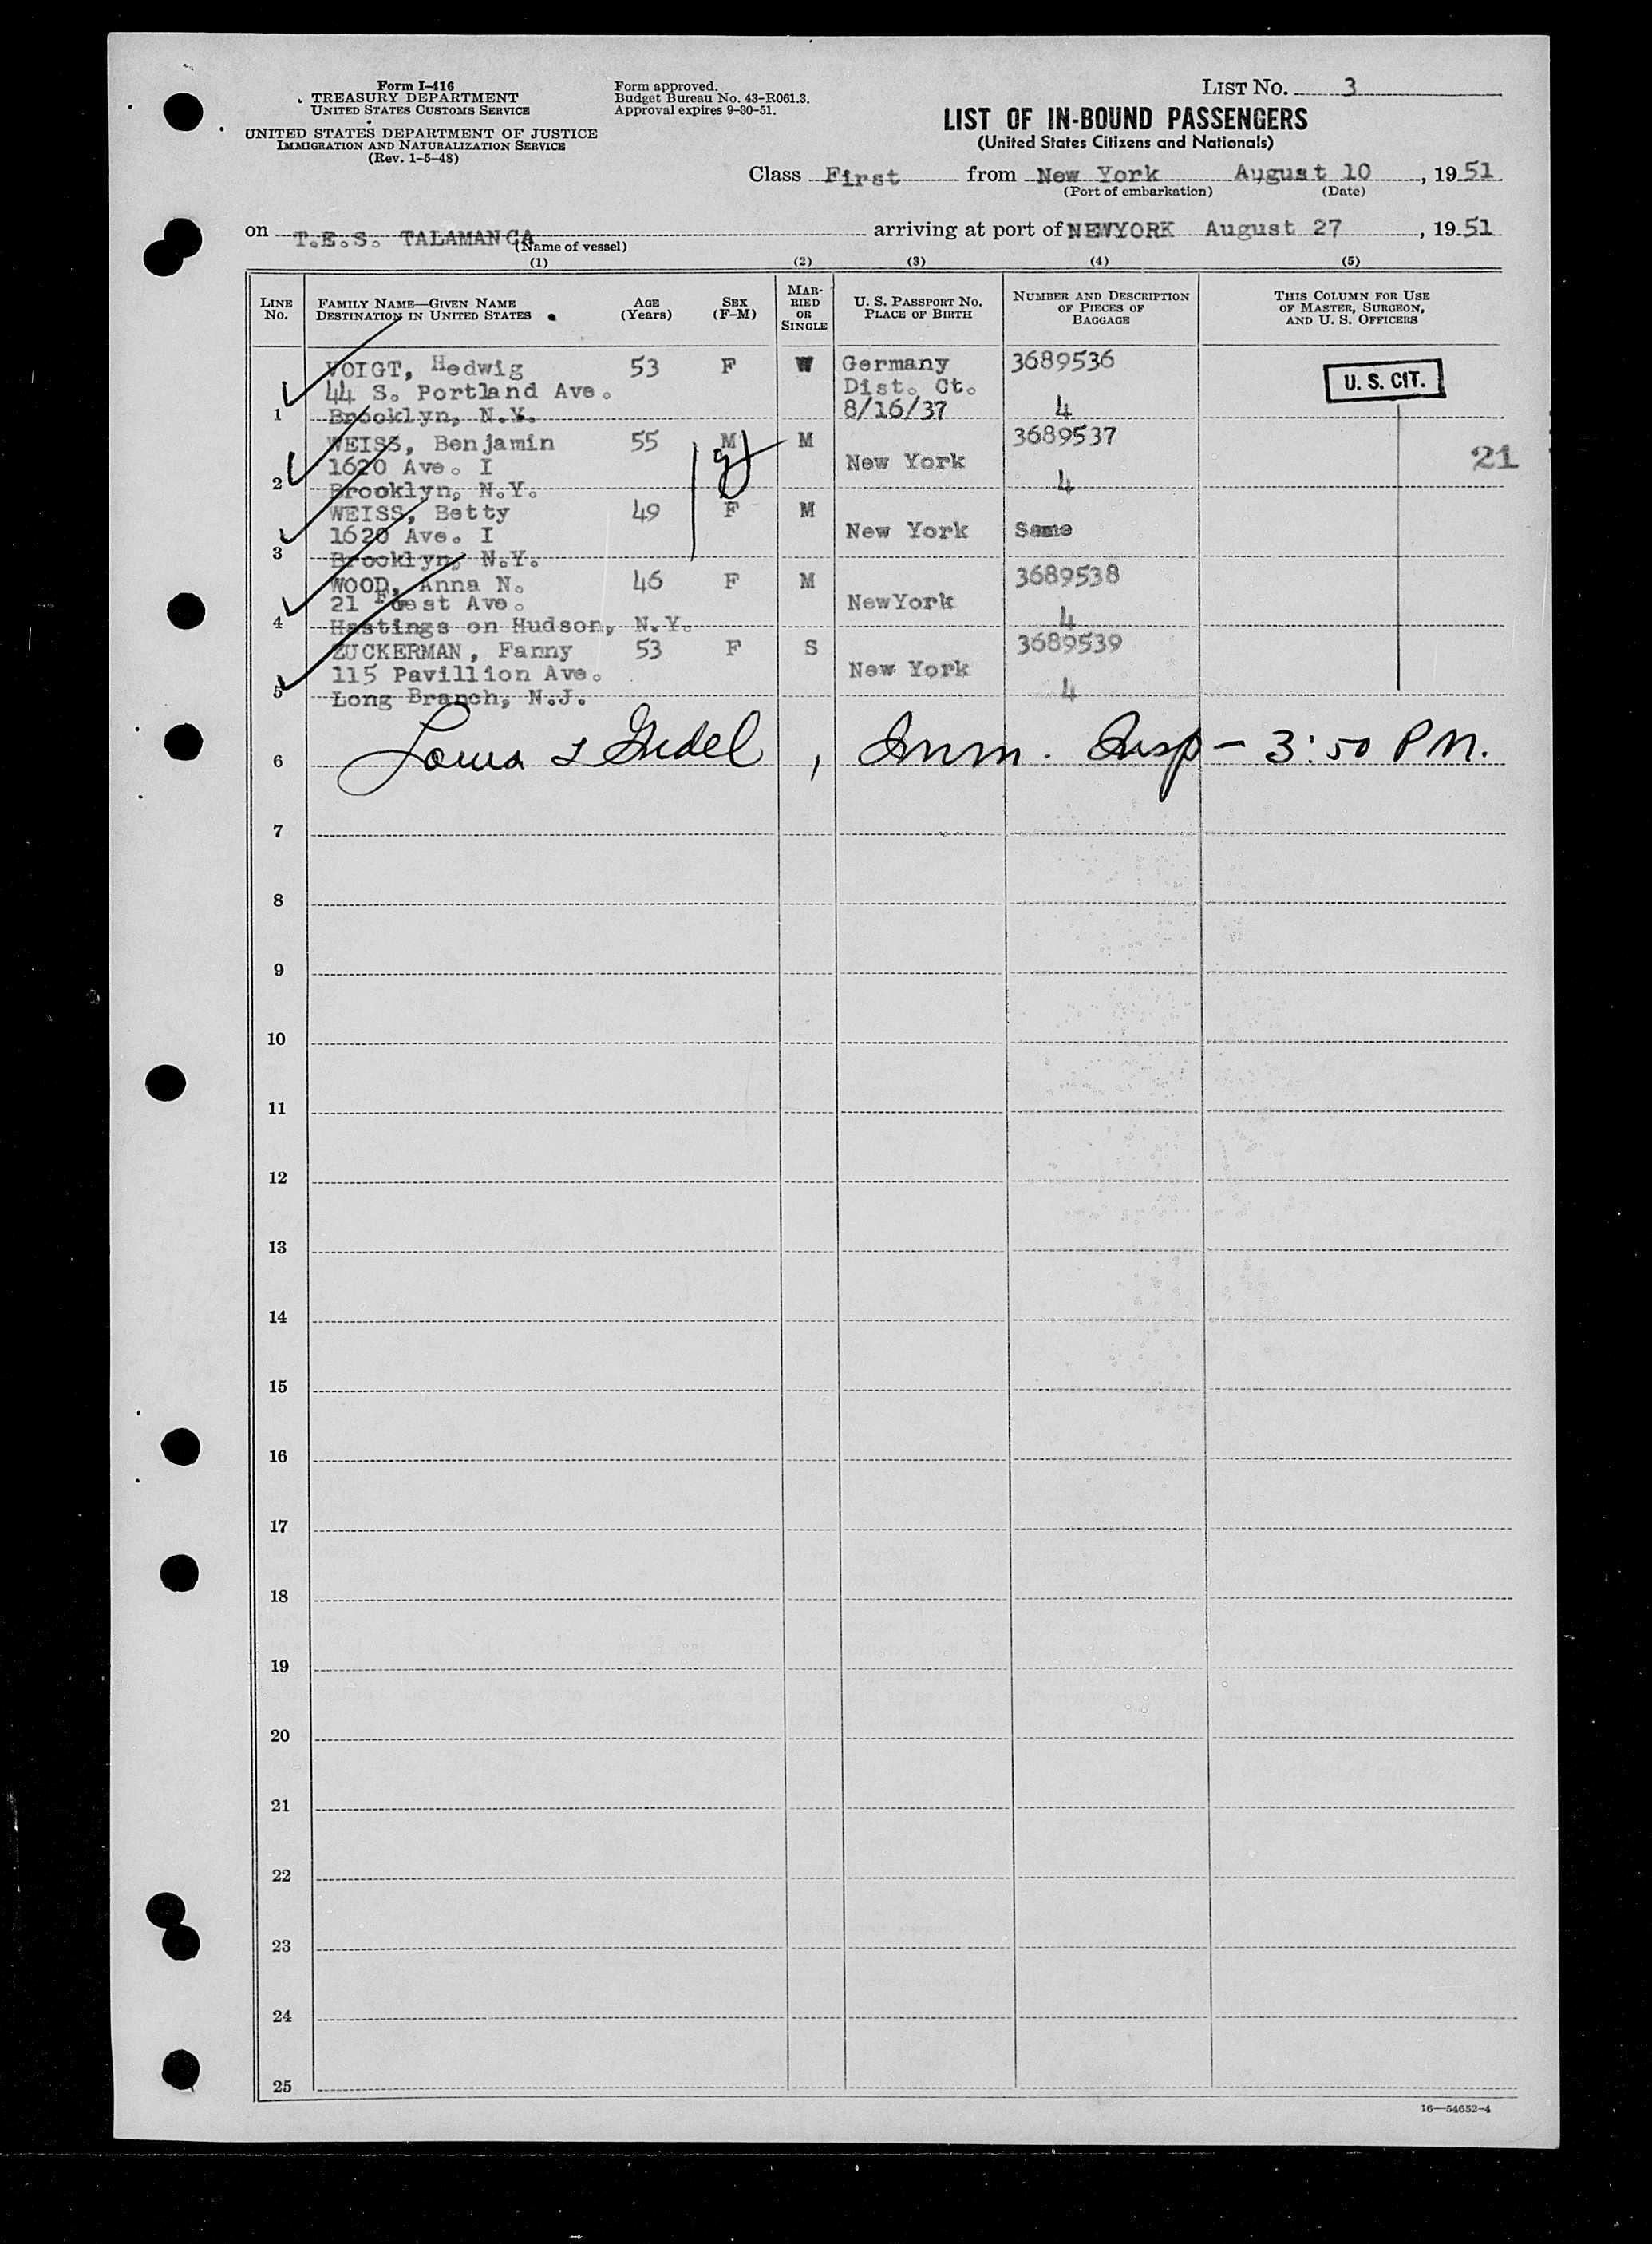 Form I-416
TREASURY DEPARTMENT
UNITED STATES CUSTOMS SERVICE
UNITED STATES DEPARTMENT OF JUSTICE
IMMIGRATION AND NATURALIZATION SERVICE
(Rev. 1-5-48)
Form approved.
Budget Bureau No. 43-R061.3.
Approval expires 9-30-51.
LIST NO. 3
LIST OF IN-BOUND PASSENGERS
(United States Citizens and Nationals)
Class First from New York August 10, 1951
(Port of embarkation) (Date)
on T.E.S. TALAMANCA arriving at port of NEWYORK August 27, 1951
(Name of vessel)
(1) (2) (3) (4) (5)
LINE No.
FAMILY NAME—GIVEN NAME
DESTINATION IN UNITED STATES
AGE (Years)
SEX (F-M)
MARRIED OR SINGLE
U. S. PASSPORT NO.
PLACE OF BIRTH
NUMBER AND DESCRIPTION
OF PIECES OF
BAGGAGE
THIS COLUMN FOR USE
OF MASTER, SURGEON,
AND U. S. OFFICERS
VOIGT, Hedwig 53 F W Germany 3689536
44 S. Portland Ave. Dist. Ct. U. S. CIT.
1 Brooklyn, N.Y. 8/16/37 4
WEISS, Benjamin 55 M M 3689537
1620 Ave. I New York 21
2 Brooklyn, N.Y. 4
WEISS, Betty 49 F M
1620 Ave. I New York Same
3 Brooklyn, N.Y.
WOOD, Anna N. 46 F M 3689538
21 Foest Ave. NewYork
4 Hastings on Hudson, N.Y. 4
ZUCKERMAN, Fanny 53 F S 3689539
115 Pavillion Ave. New York
5 Long Branch, N.J. 4
6 , Imm. Insp - 3:50 PM.
7
8
9
10
11
12
13
14
15
16
17
18
19
20
21
22
23
24
25
16—54652-4